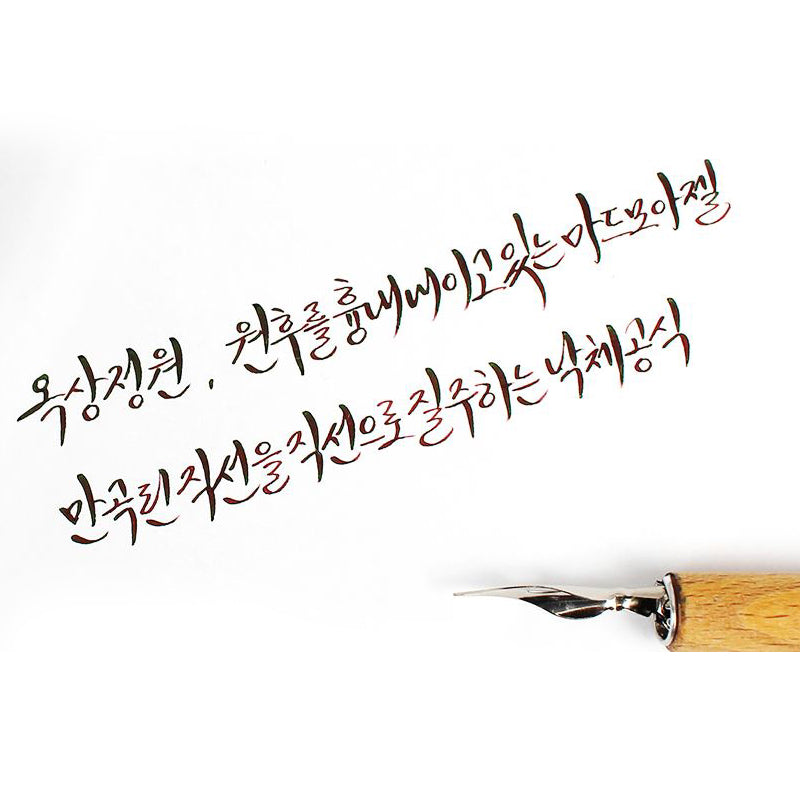 옥상정원. 원후를흉내내이고있는마드모아젤
만곡된직선을직선으로질주하는낙체공식